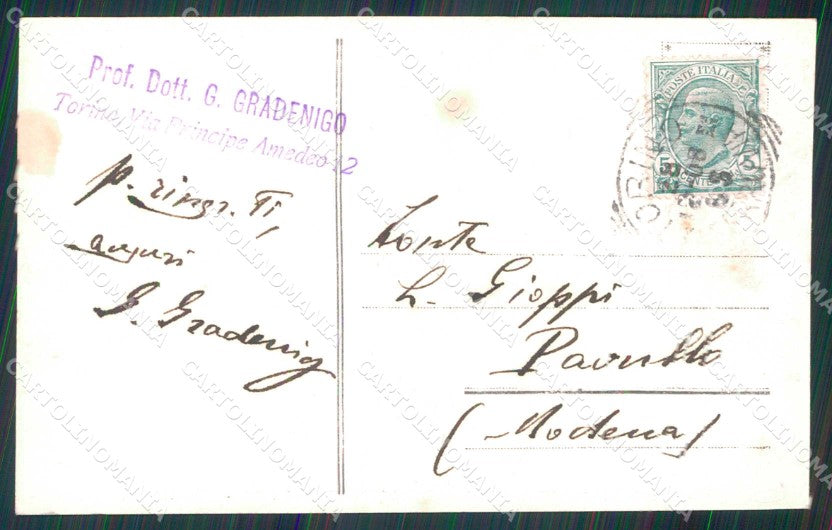 Prof. Dott. G. GRADENIGO
Torino, Via Principe Amedeo 12
p. ringr. Ti,
auguri
G. Gradenigo
POSTE ITALIANE
CENT
Conte
L. Gioppi
Pavullo
(Modena)
CARTOLINOMANIA